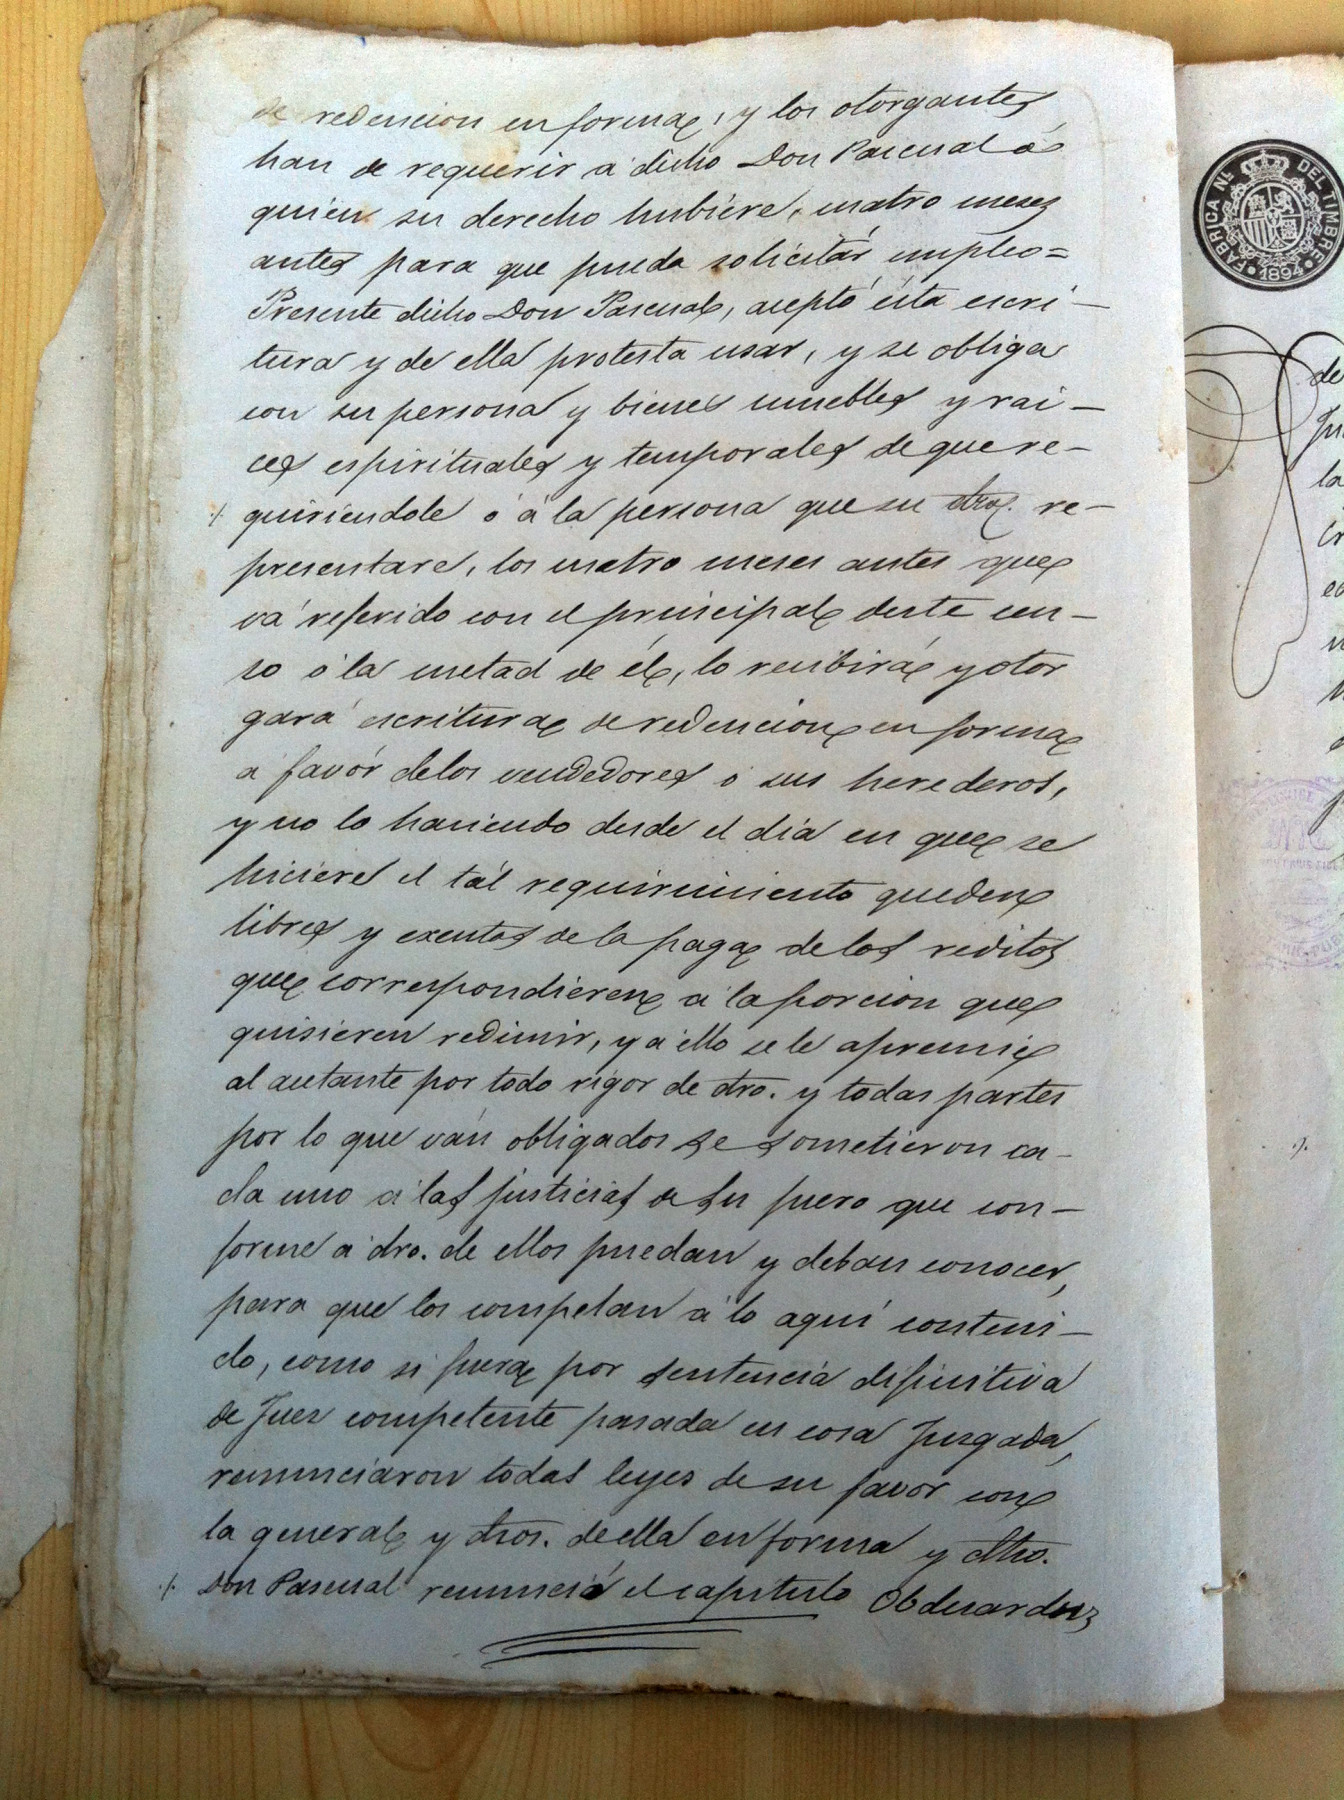 de redencion en forma, y los otorgantes
han de requerir á dicho Don Pascual ó á
quien su derecho hubiere, cuatro meses
antes para que pueda solicitár empleo=
Presente dicho Don Pascual, aceptó ésta escri-
tura y de ella protesta usar, y se obliga
con su persona y bienes muebles y rai-
ces espirituales y temporales de que re-
quiriendole ó á la persona que su dro. re-
presentare, los cuatro meses antes que
vá referido con el principal deste cen-
so ó la metad de él, lo recibirá y otor
gará escritura de redencion en forma
a favór delos vendedores ó sus herederos,
y no lo haciendo desde el dia en que se
hiciere el tál requirimiento queden
libres y exentos de la paga de los reditos
que correspondieren á la porcion que
quisieren redimir, y á ello se le apremie
al autante por todo rigor de dro. y todas partes
por lo que ván obligados se sometieron ca-
da uno á las justicias de su fuero que con-
forme á dro. de ellos puedan y deban conocer,
para que los compelan á lo aquí conteni-
do, como si fuera por sentencia difinitiva
de Juez competente pasada en cosa Juzgada,
renunciaron todas leyes de su favor con
la general y dros. de ella en forma y dho.
Don Pascual renunció el capitulo Obduardus
FABRICA NL. DEL TIMBRE
1894